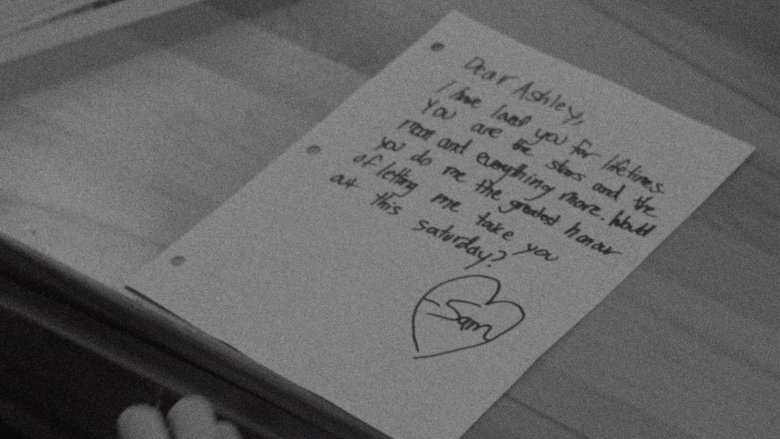 Dear Ashley,
I have loved you for lifetimes.
You are the stars and the
moon and everything more. Would
you do me the greatest honour
of letting me take you
out this saturday?
-Sam